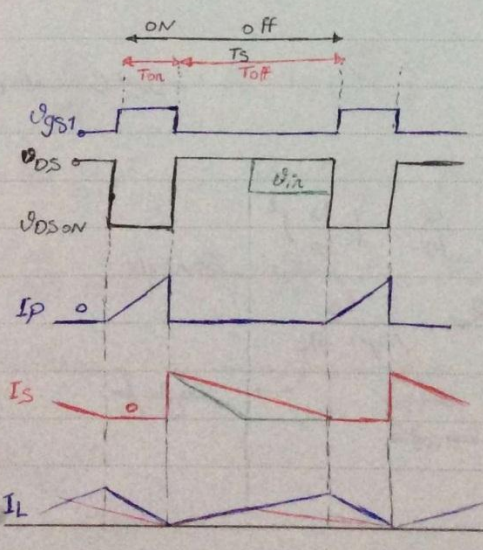 ON off
Ts
Ton Toff
Vgs1
VDS
Vin
VDSON
IP 0
IS 0
IL